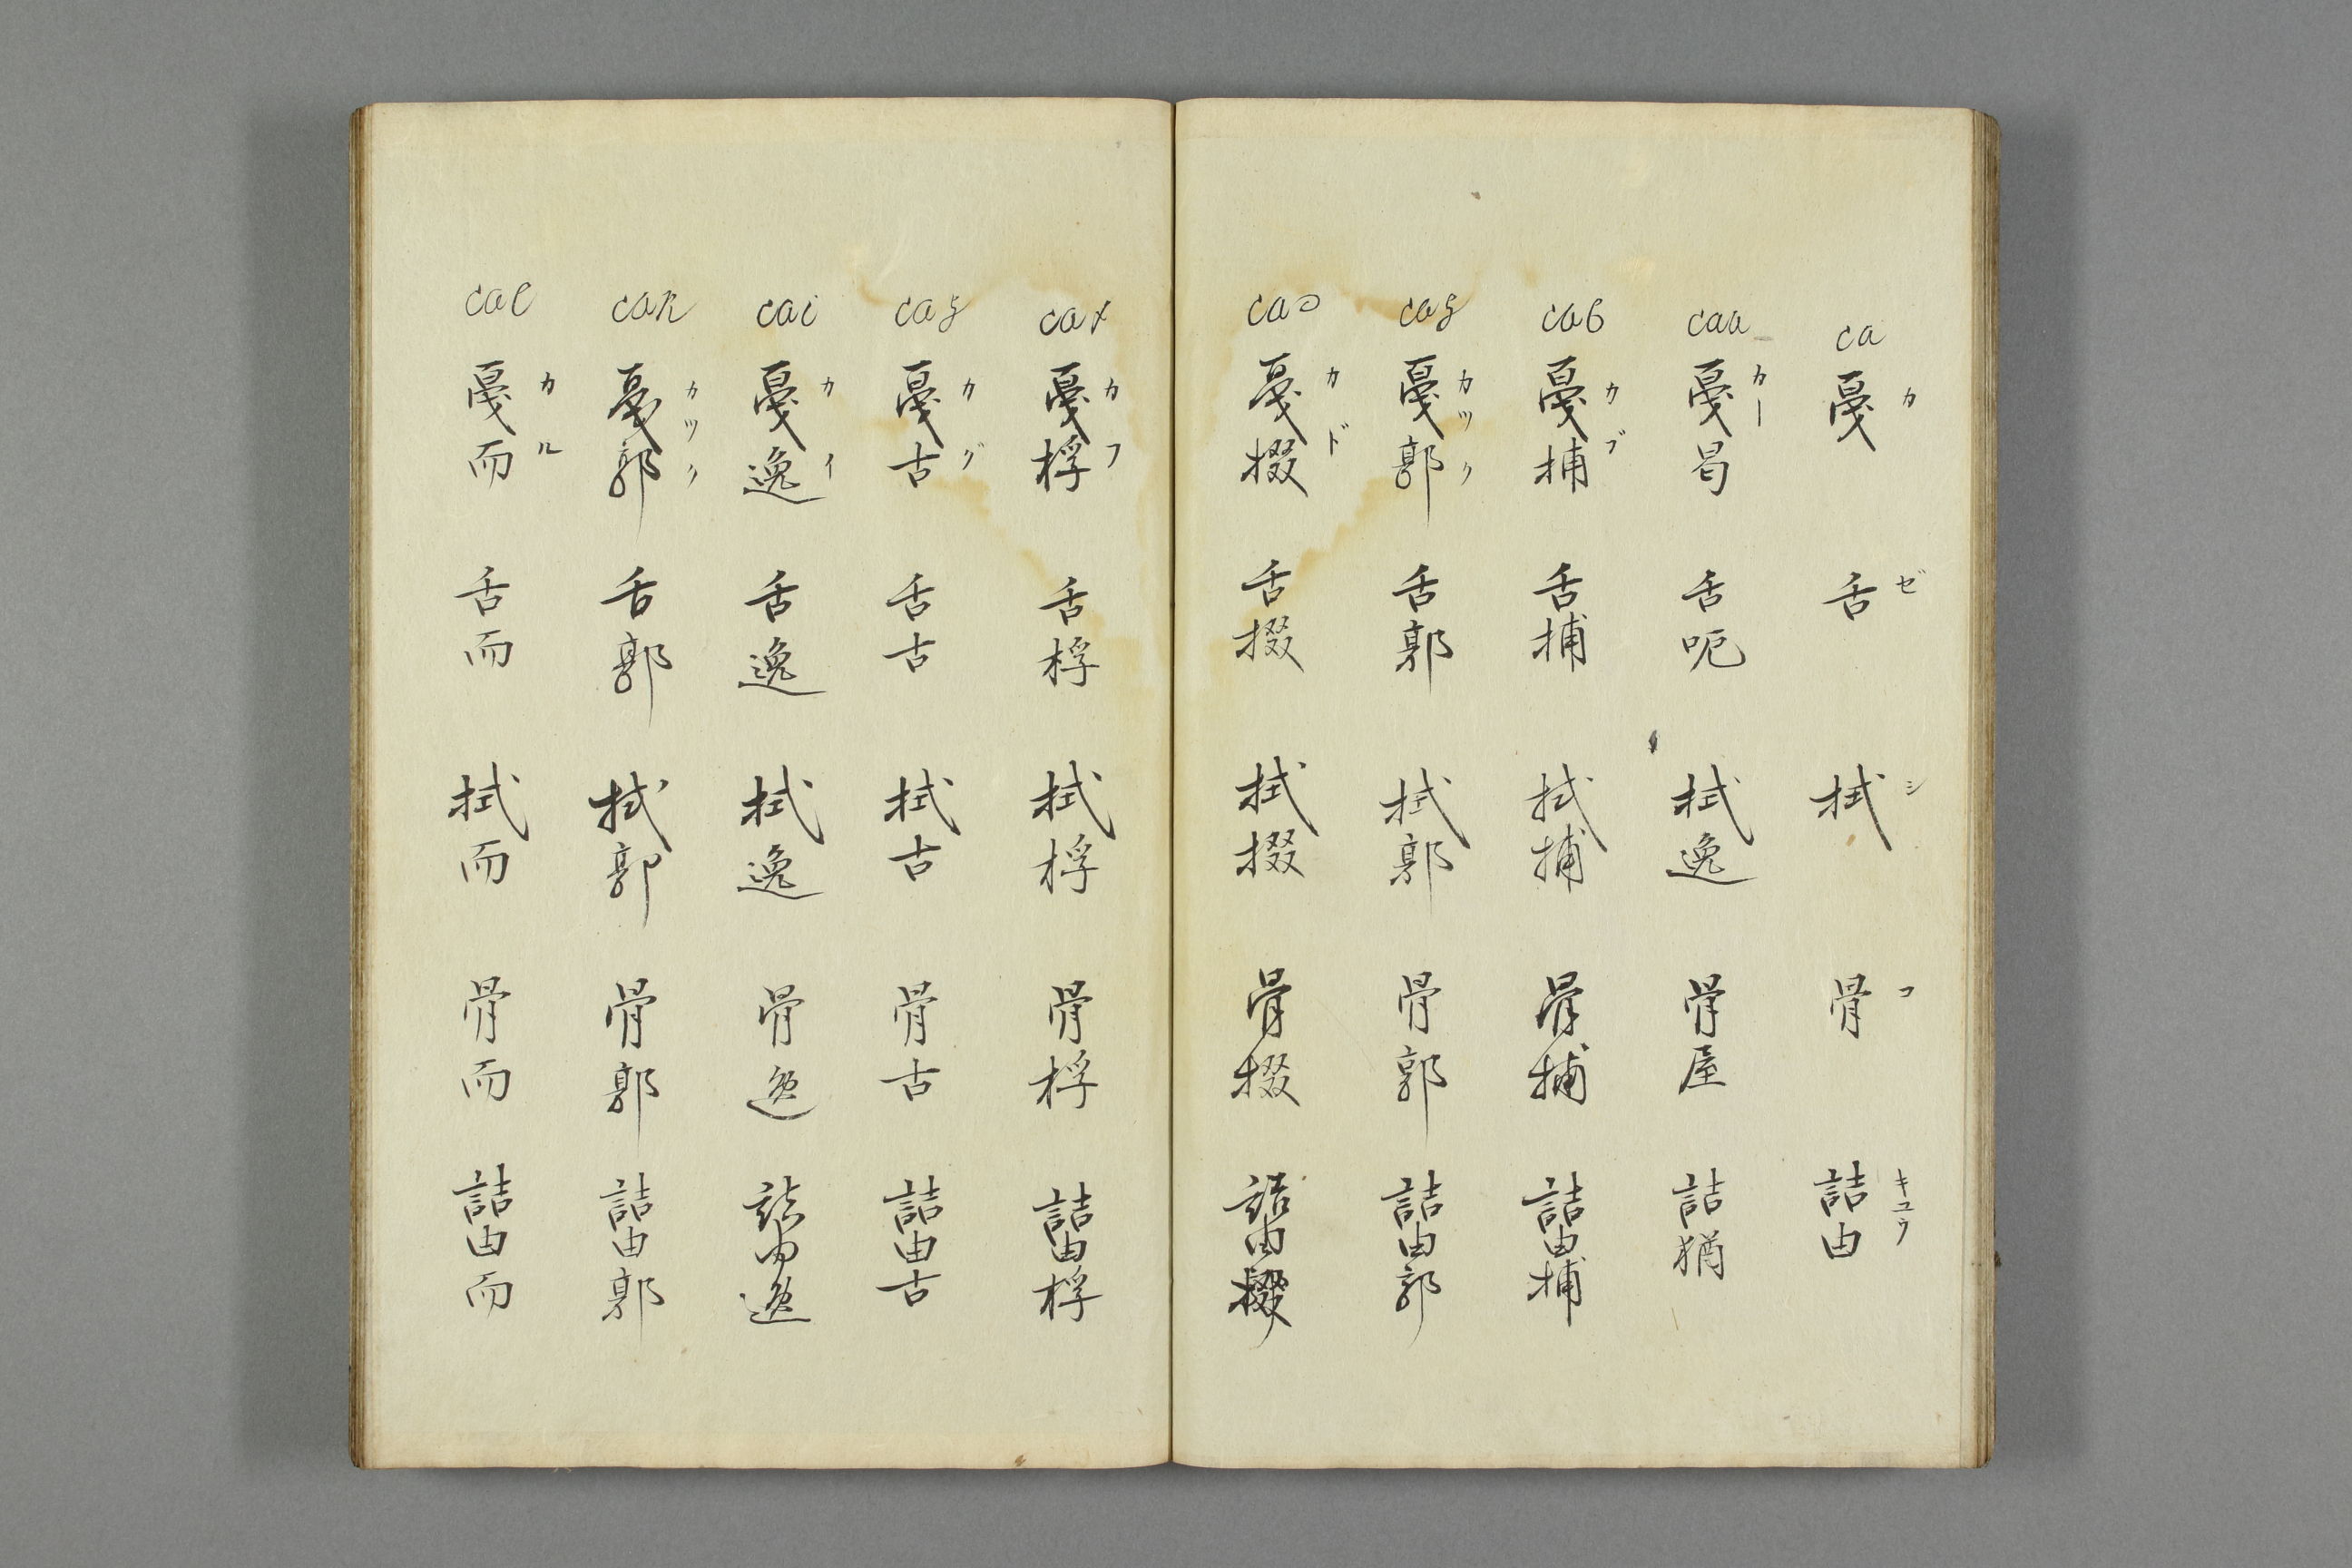 カ ゼ シ コ キュウ
ca 戛 舌 拭 骨 詰由
カー
caa 戛曷 舌呃 拭逸 骨屋 詰猶
カブ
cab 戛捕 舌捕 拭捕 骨捕 詰由捕
カック
戛郭 舌郭 拭郭 骨郭 詰由郭
カド
cad 戛掇 舌掇 拭掇 骨掇 詰由掇
カフ
caf 戛桴 舌桴 拭桴 骨桴 詰由桴
カグ
cag 戛古 舌古 拭古 骨古 詰由古
カイ
cai 戛逸 舌逸 拭逸 骨逸 詰由逸
カツク
cak 戛郭 舌郭 拭郭 骨郭 詰由郭
カル
cal 戛而 舌而 拭而 骨而 詰由而